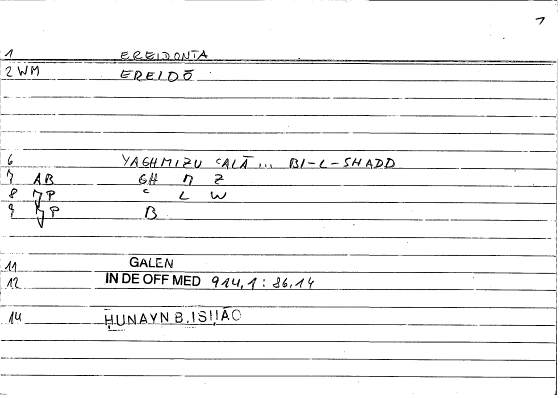 1
1 EREIDONTA
2 WM EREIDŌ
6 YAGHMIZU ʿALĀ ... BI-L-SHADD
7 AB GH M Z
8 JP ʿ L W
9 JP B
11 GALEN
12 IN DE OFF MED 914,1 : 86,14
14 ḤUNAYN B. ISḤĀQ